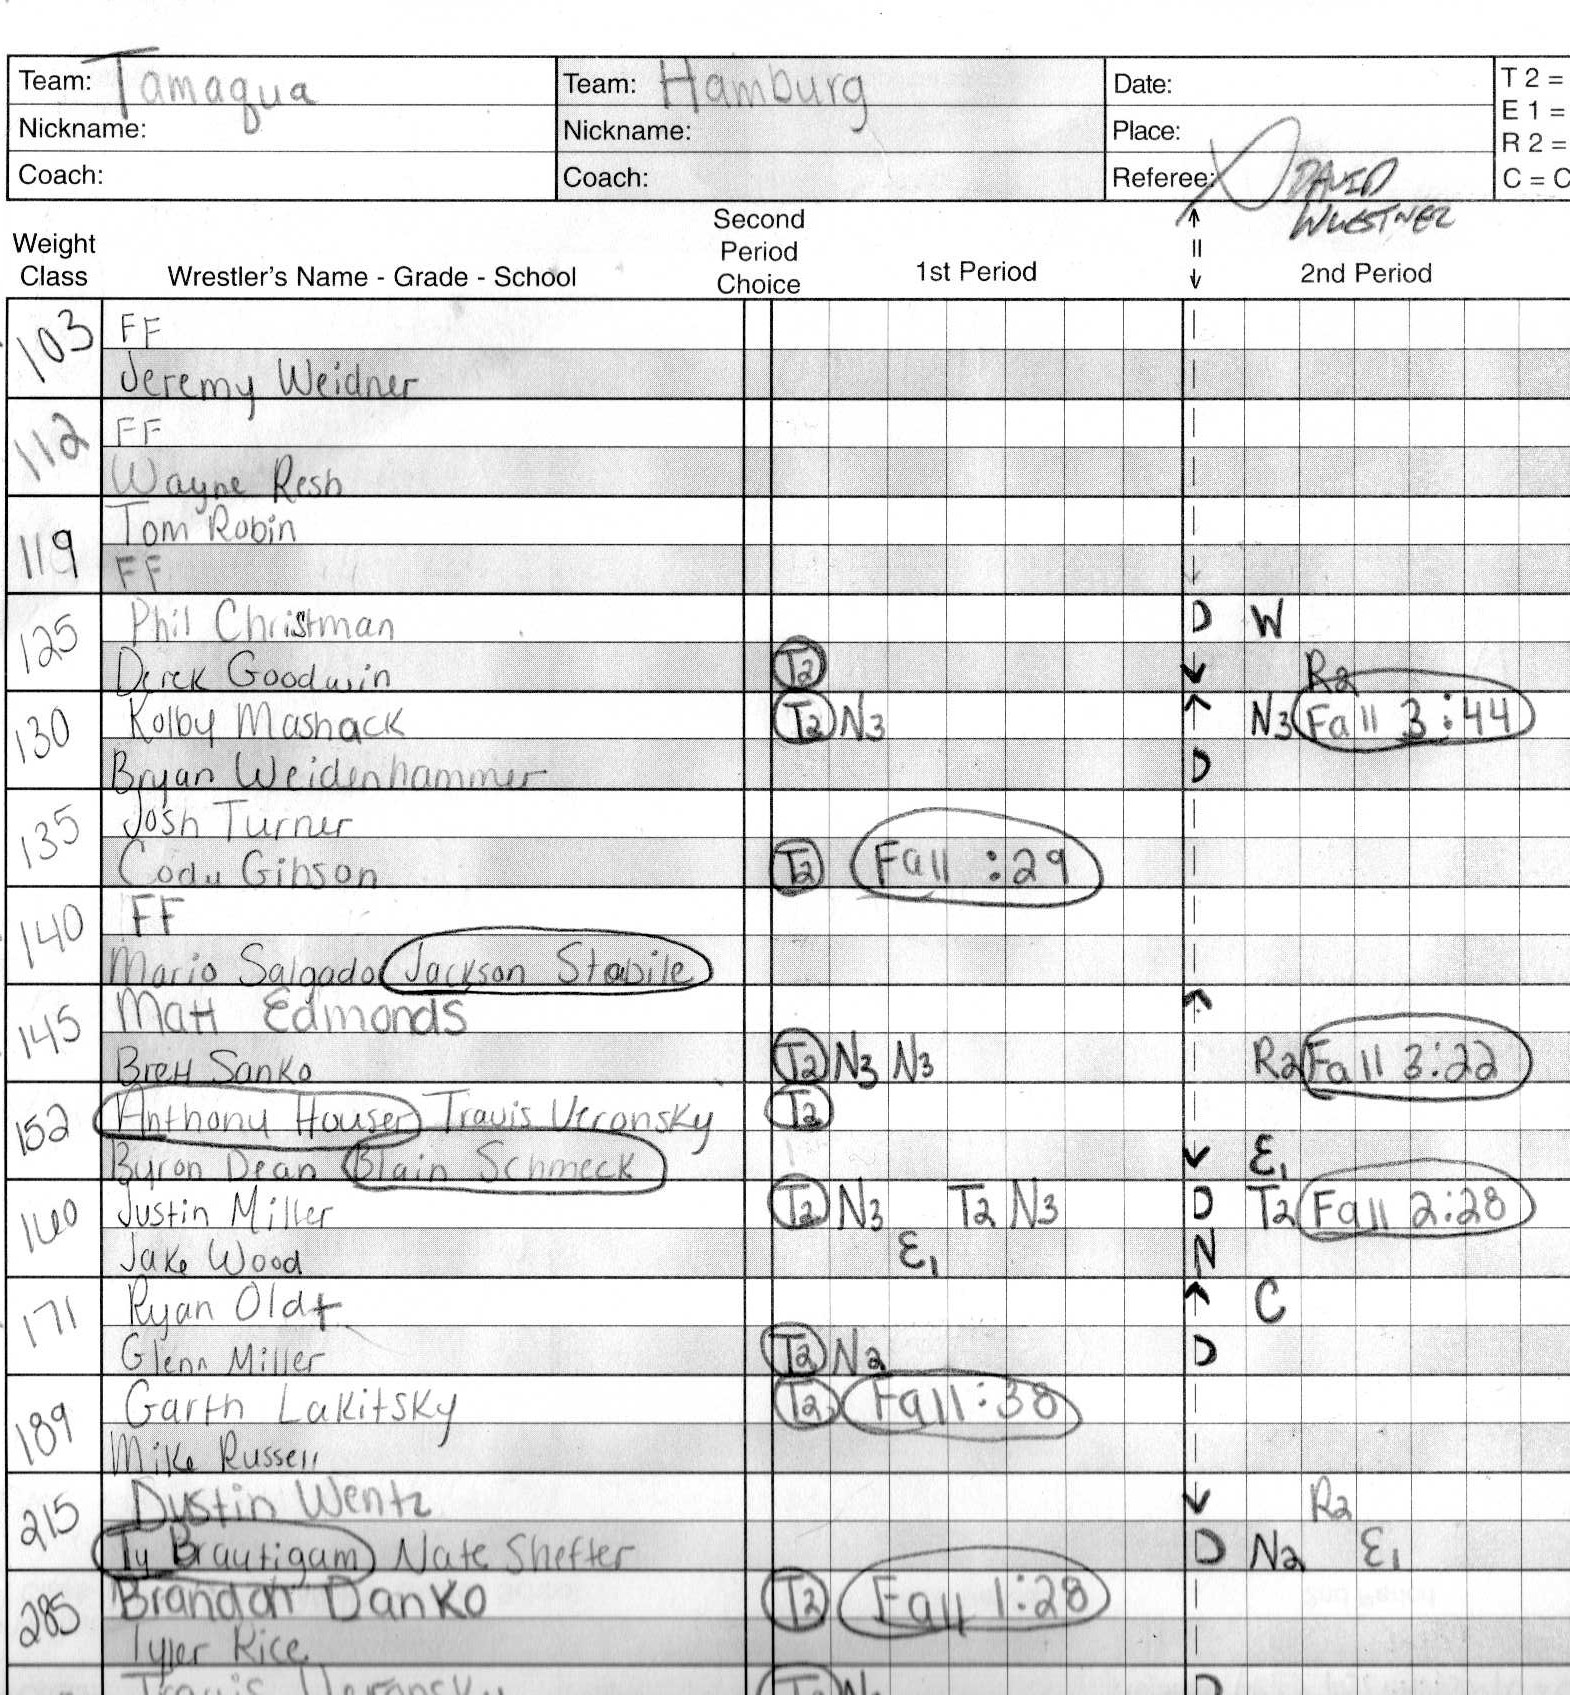 Team: Tamaqua Team: Hamburg Date: T 2 =
Nickname: Nickname: Place: E 1 =
R 2 =
Coach: Coach: Referee: DAVID C = C
WUESTNER
Second
Weight Period
Class Wrestler's Name - Grade - School Choice 1st Period 2nd Period
103 FF
Jeremy Weidner
112 FF
Wayne Resh
119 Tom Robin
FF
125 Phil Christman D W
Derek Goodwin T2 R2
130 Kolby Mashack T2 N3 N3 Fall 3:44
Bryan Weidenhammer D
135 Josh Turner
Cody Gibson T2 Fall :29
140 FF
Mario Salgado Jackson Stabile
145 Matt Edmonds
Brett Sanko T2 N3 N3 R2 Fall 3:22
152 Anthony Houser Travis Veronsky T2
Byron Dean Blain Schmeck E1
160 Justin Miller T2 N3 T2 N3 D T2 Fall 2:28
Jake Wood E1 N
171 Ryan Oldt C
Glenn Miller T2 N2 D
189 Garth Lakitsky T2 Fall :38
Mike Russell
215 Dustin Wentz R2
Ty Brautigam Nate Shefter D N2 E1
285 Brandon Danko T2 Fall 1:28
Tyler Rice
Travis Veronsky T2 N D